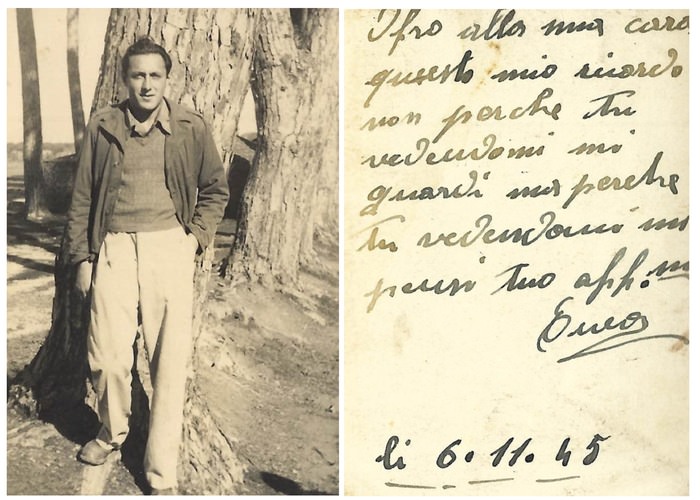 Ofro alla mia cara
questo mio ricordo
non perche tu
vedendomi mi
guardi ma perche
tu vedendomi mi
pensi tuo aff.mo
li 6.11.45